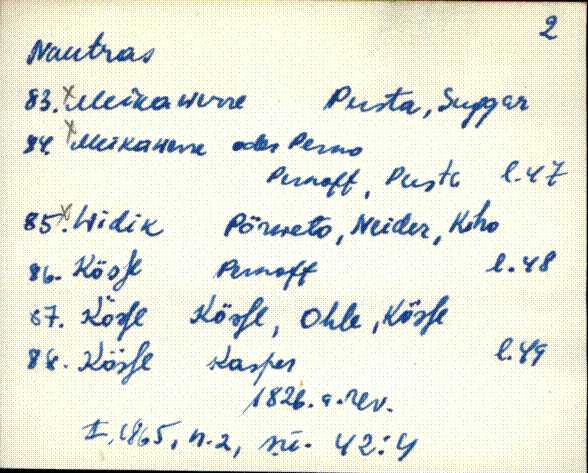 2
Nautras
83. x Meikawerre Pusta, Suggar
84. x Meikawerre oder Perno
Pernoff, Pusta l. 47
85. x Widik Pörweto, Neider, Koho
86. Kösfe Pernoff l. 48
87. Kösfe Kösfe, Ohle, Kösfe
88. Kösfe Kasper l. 49
1826. a. rev.
I, 1865, n. 2, sü. 42:4